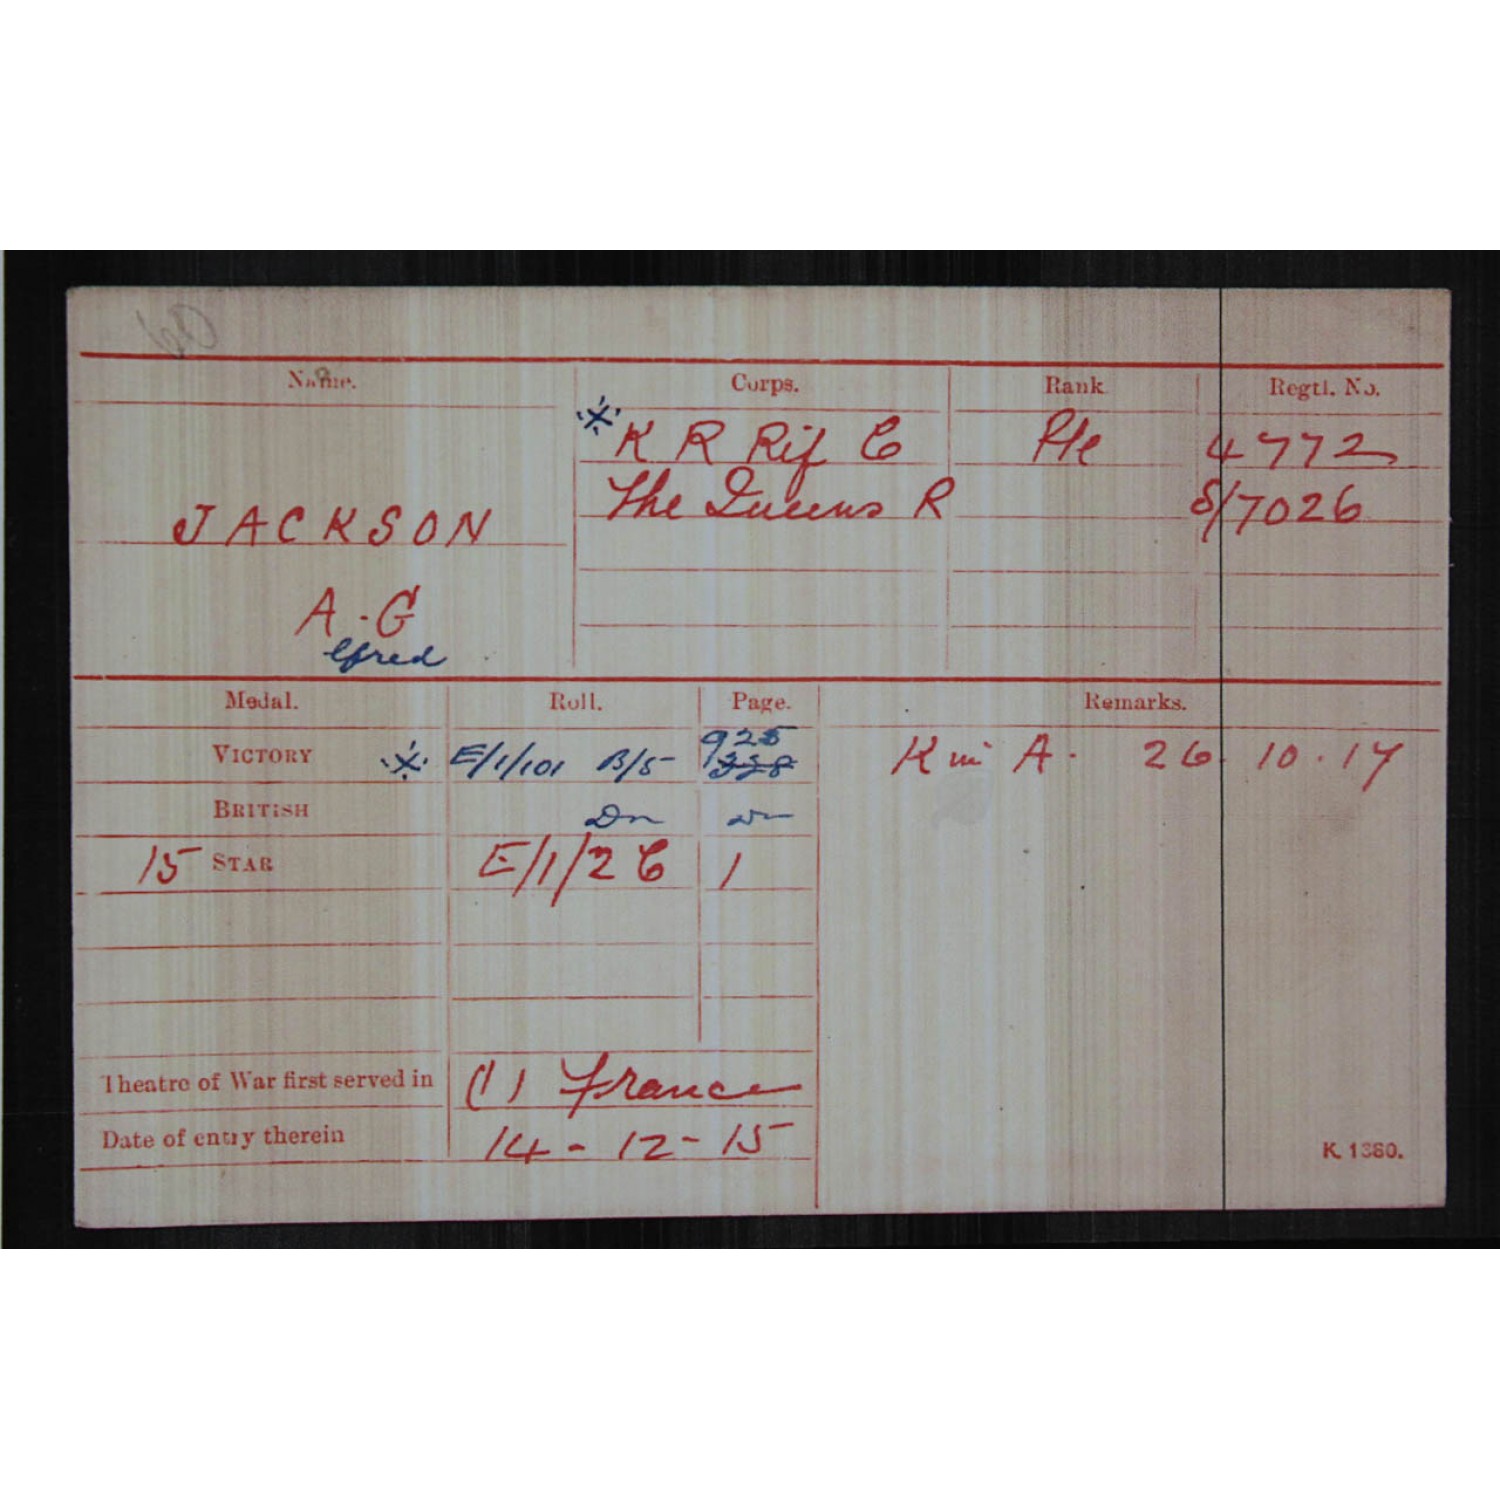 60
Name.
Corps.
Rank
Regtl. No.
※ K R Rif C
Pte
4772
The Queens R
S/7026
JACKSON
A. G
lfred
Medal.
Roll.
Page.
Remarks.
VICTORY ※
E/1/101 B/5
925
K in A. 26. 10. 17
BRITISH
Do
Do
15 STAR
E/1/2 C
1
Theatre of War first served in
(1) France
Date of entry therein
14-12-15
K. 1380.